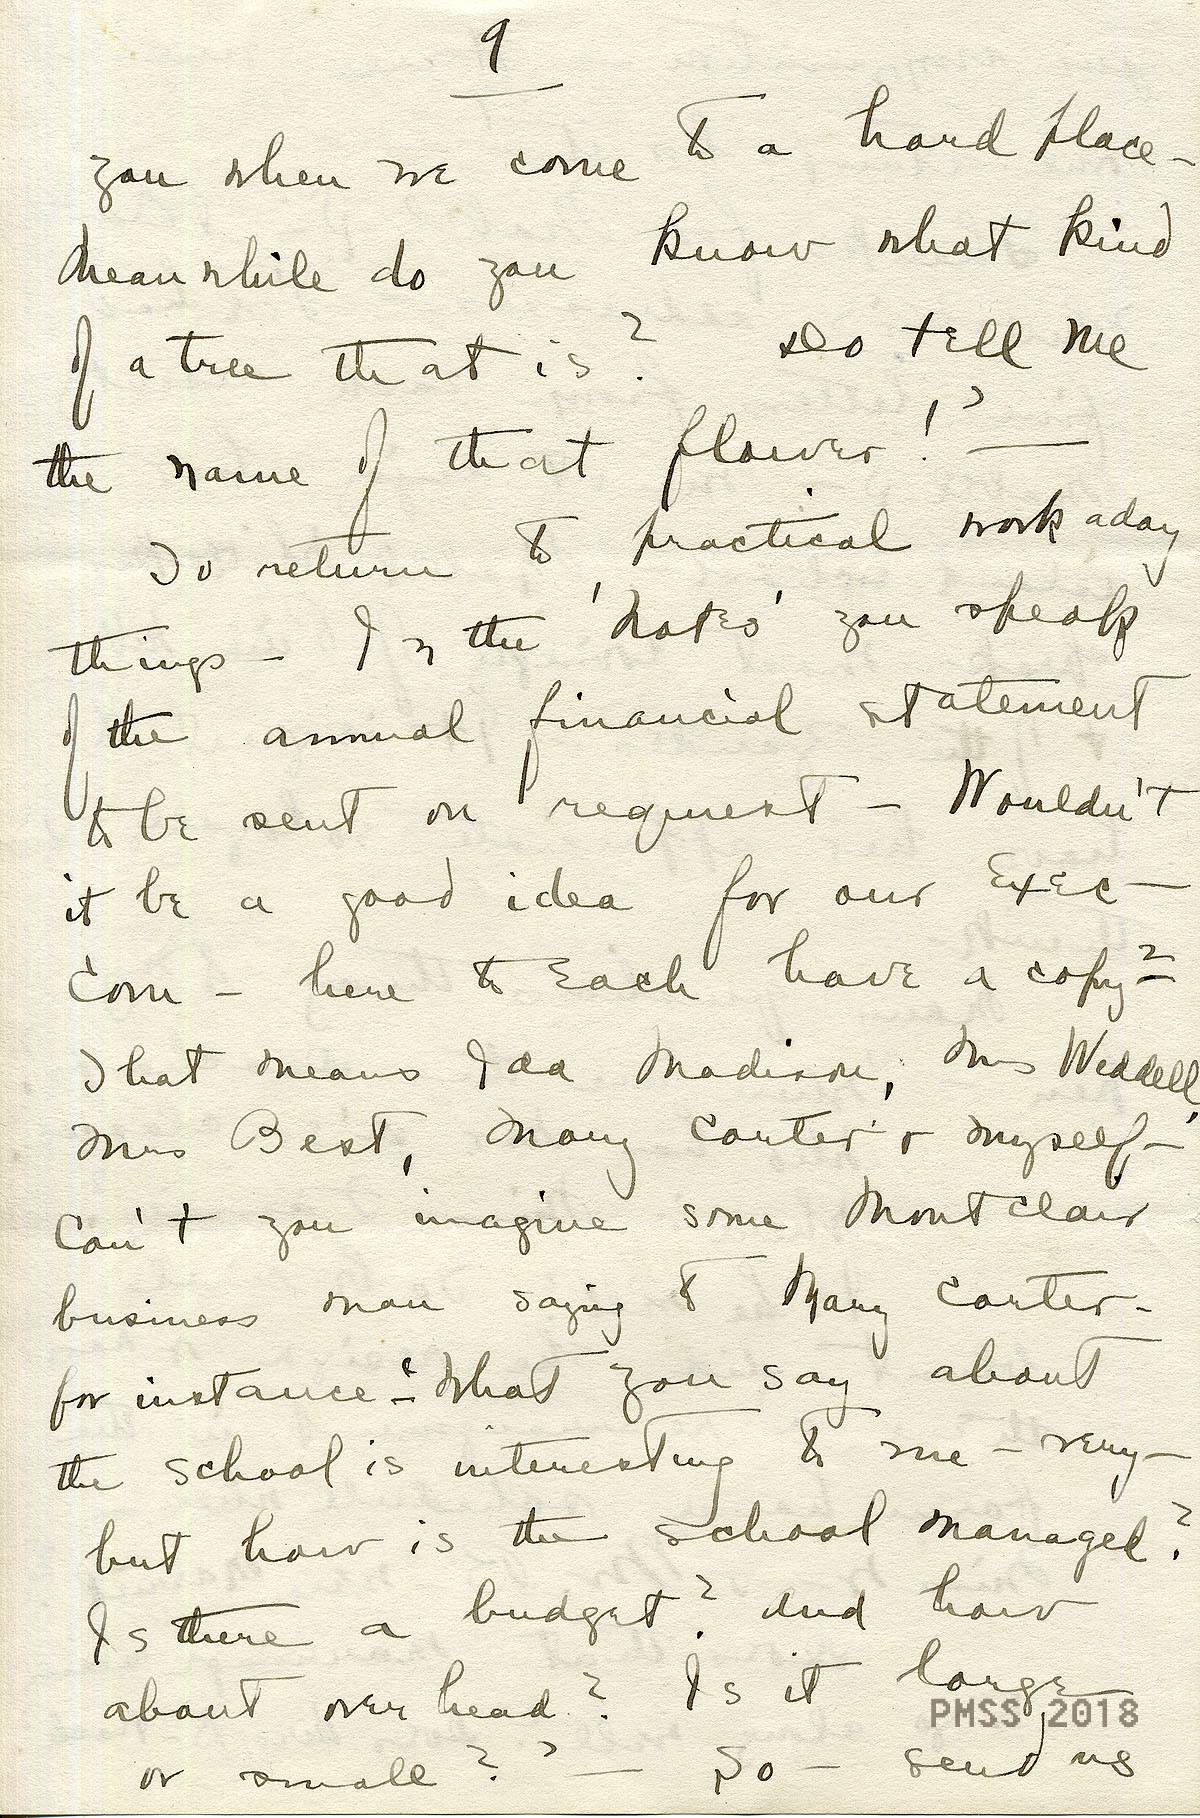 9
you when we come to a hard place –
Meanwhile do you know what kind
of a tree that is? do tell me
the name of that flower!' —
To return to practical work aday
things – In the 'Notes' you speak
of the annual financial statement
to be sent on request – Wouldn't
it be a good idea for our Exec –
Com – here to each have a copy?
That means Ida Madison, Mrs Weddell,
Mrs Best, Mary Carter & myself –
Can't you imagine some Montclair
business man saying to Mary Carter –
for instance – 'What you say about
the school is interesting to me – very –
but how is the school managed?
Is there a budget? And how
about over head? Is it large
or small?' — So – send us
PMSS 2018